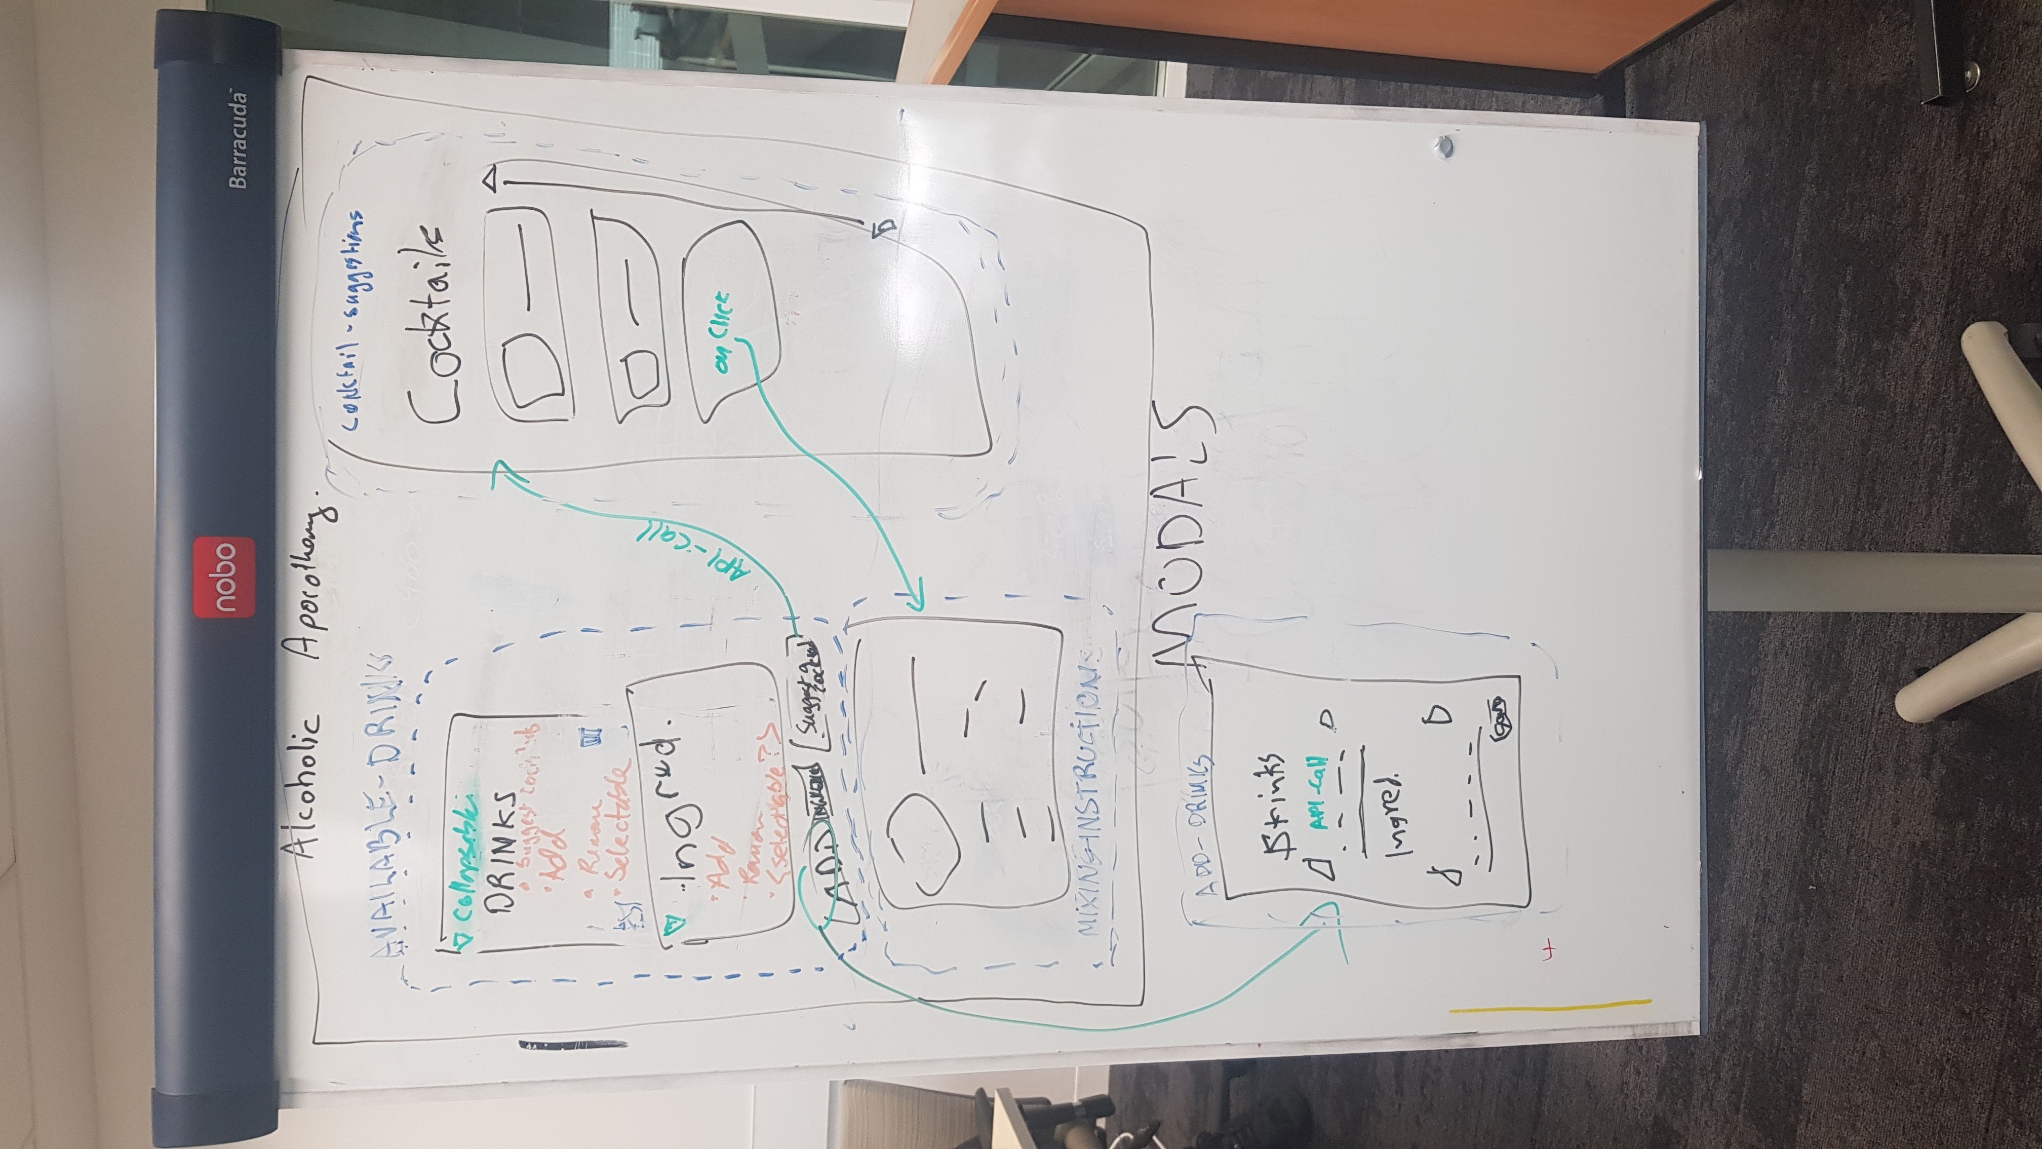 nobo
Barracuda
Alcoholic Aporothemy.
AVAILABLE-DRINKS
Collapsable
DRINKS
• Suggest cocktails
• Add
• Remove
• Selectable
Ingred.
• Add
• Remove
• <selectable?>
ADD
Suggest a
API-Call
Cocktail-suggestions
Cocktails
on Click
MIXING-INSTRUCTIONS
MODALS
ADD-DRINKS
Drinks
API-Call
Ingred.